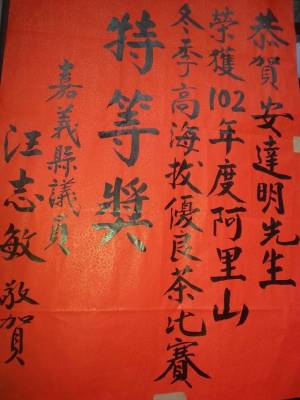 恭賀安達明先生
榮獲102年度阿里山
冬季高海拔優良茶比賽
特等獎
嘉義縣議員
汪志敏敬賀